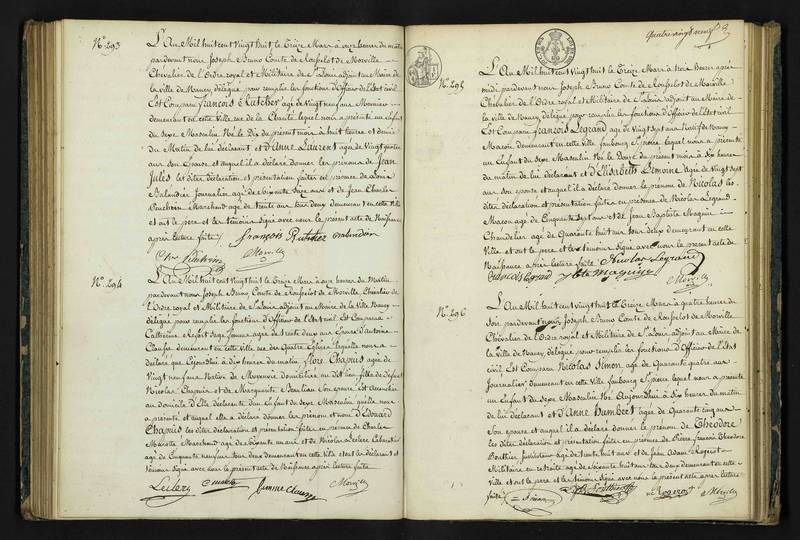 N.o 293
L'An Mil huit cent vingt huit le Treize Mars à onze heures du matin
pardevant nous Joseph Bruno Comte de Rousselot de Morville
Chevalier de l'Ordre royal et Militaire de S.t Louis adjoint au Maire de
la ville de Nancy, délégué pour remplir les fonctions d'Officier de l'état civil
Est Comparu François Rutcher agé de vingt neuf ans
demeurant en cette Ville lequel nous a présenté un enfant
du sexe Masculin Né le Dix du présent mois à huit heures et demie
du Matin de lui déclarant et d'Anne Laurent agée de Vingt quatre
ans Son Epouse et auquel il a déclaré donner les prénoms de Jean
Jules les dites déclaration et présentation faites en présence de
Balandier Journalier agé de Soixante ans et de Jean Charles
Marchand agé de trente ans tous deux demeurant en cette Ville
et ont le père et les témoins Signé avec nous le présent acte de Naissance
après lecture faite.
François Rutcher
Morville
N.o 294
L'An Mil huit cent vingt huit le Treize Mars à onze heures du Matin
pardevant nous Joseph Bruno Comte de Rousselot de Morville, Chevalier de
l'Ordre royal et Militaire de S.t Louis adjoint au Maire de la Ville de Nancy
délégué pour remplir les fonctions d'Officier de l'état civil Est Comparue
Catherine Sage femme agée de trente deux ans Epouse d'Antoine
Clausse demeurant en cette ville rue des Quatre Eglises laquelle nous a
déclaré que Cejourd'hui à dix heures du matin Flore Chapuis agée de
Vingt neuf ans Native de domiciliée au dit lieu fille de défunt
Nicolas Chapuis et de Marguerite est accouchée
au domicile d'Elle déclarante d'un Enfant du Sexe Masculin qu'elle nous
a présenté et auquel elle a déclaré donner les prénom et nom d'Edouard
Chapuis les dites déclaration et présentation faites en présence de Charles
Marotte Marchand agé de Soixante ans et de Nicolas Leclerc
agé de Cinquante ans tous deux demeurant en cette ville et ont la déclarante et
témoins Signé avec nous le présent acte de Naissance après lecture faite
Leclerc femme Clausse Morville
quatre vingt neuf
N.o 295
L'An Mil huit cent vingt huit le Treize Mars à trois heures après
midi pardevant nous Joseph Bruno Comte de Rousselot de Morville
Chevalier de l'Ordre royal et Militaire de S.t Louis adjoint au Maire de
la ville de Nancy, délégué pour remplir les fonctions d'Officier de l'état civil
Est Comparu François Legrand agé de Vingt sept ans Natif de Nancy
Maçon demeurant en cette Ville faubourg S.t pierre lequel nous a présenté
un Enfant du Sexe Masculin Né le Douze du présent mois à Six heures
du matin de lui déclarant et d'Elisabeth Limoine agée de Vingt Sept
ans Son épouse et auquel il a déclaré donner le prénom de Nicolas les
dites déclaration et présentation faites en présence de Nicolas Legrand
Maçon agé de Cinquante Sept ans et de Jean Baptiste Magini
Chandelier agé de Quarante huit ans tous deux demeurant en cette
Ville et ont le père et les témoins Signé avec nous le présent acte de
Naissance après lecture faite. Nicolas Legrand
François Legrand Morville
N.o 296
L'An Mil huit cent vingt huit le Treize Mars à quatre heures du
Soir pardevant nous Joseph Bruno Comte de Rousselot de Morville
Chevalier de l'Ordre royal et Militaire de S.t Louis adjoint au Maire de
la Ville de Nancy, délégué pour remplir les fonctions d'Officier de l'état
civil Est Comparu Nicolas Simon agé de Quarante quatre ans
Journalier demeurant en cette Ville faubourg S.t pierre lequel nous a présenté
un Enfant du Sexe Masculin Né Aujourd'hui à dix heures du matin
de lui déclarant et d'Anne Humbert agée de Quarante cinq ans
Son épouse et auquel il a déclaré donner le prénom de Théodore
les dites déclaration et présentation faites en présence de Pierre François Théodore
Bouthier agé de trente huit ans et de Jean Adam Rogerot
Militaire en retraite agé de Soixante huit ans tous deux demeurant en cette
Ville et ont le père et les témoins Signé avec nous le présent acte après lecture
faite. Simon Rogerot Morville